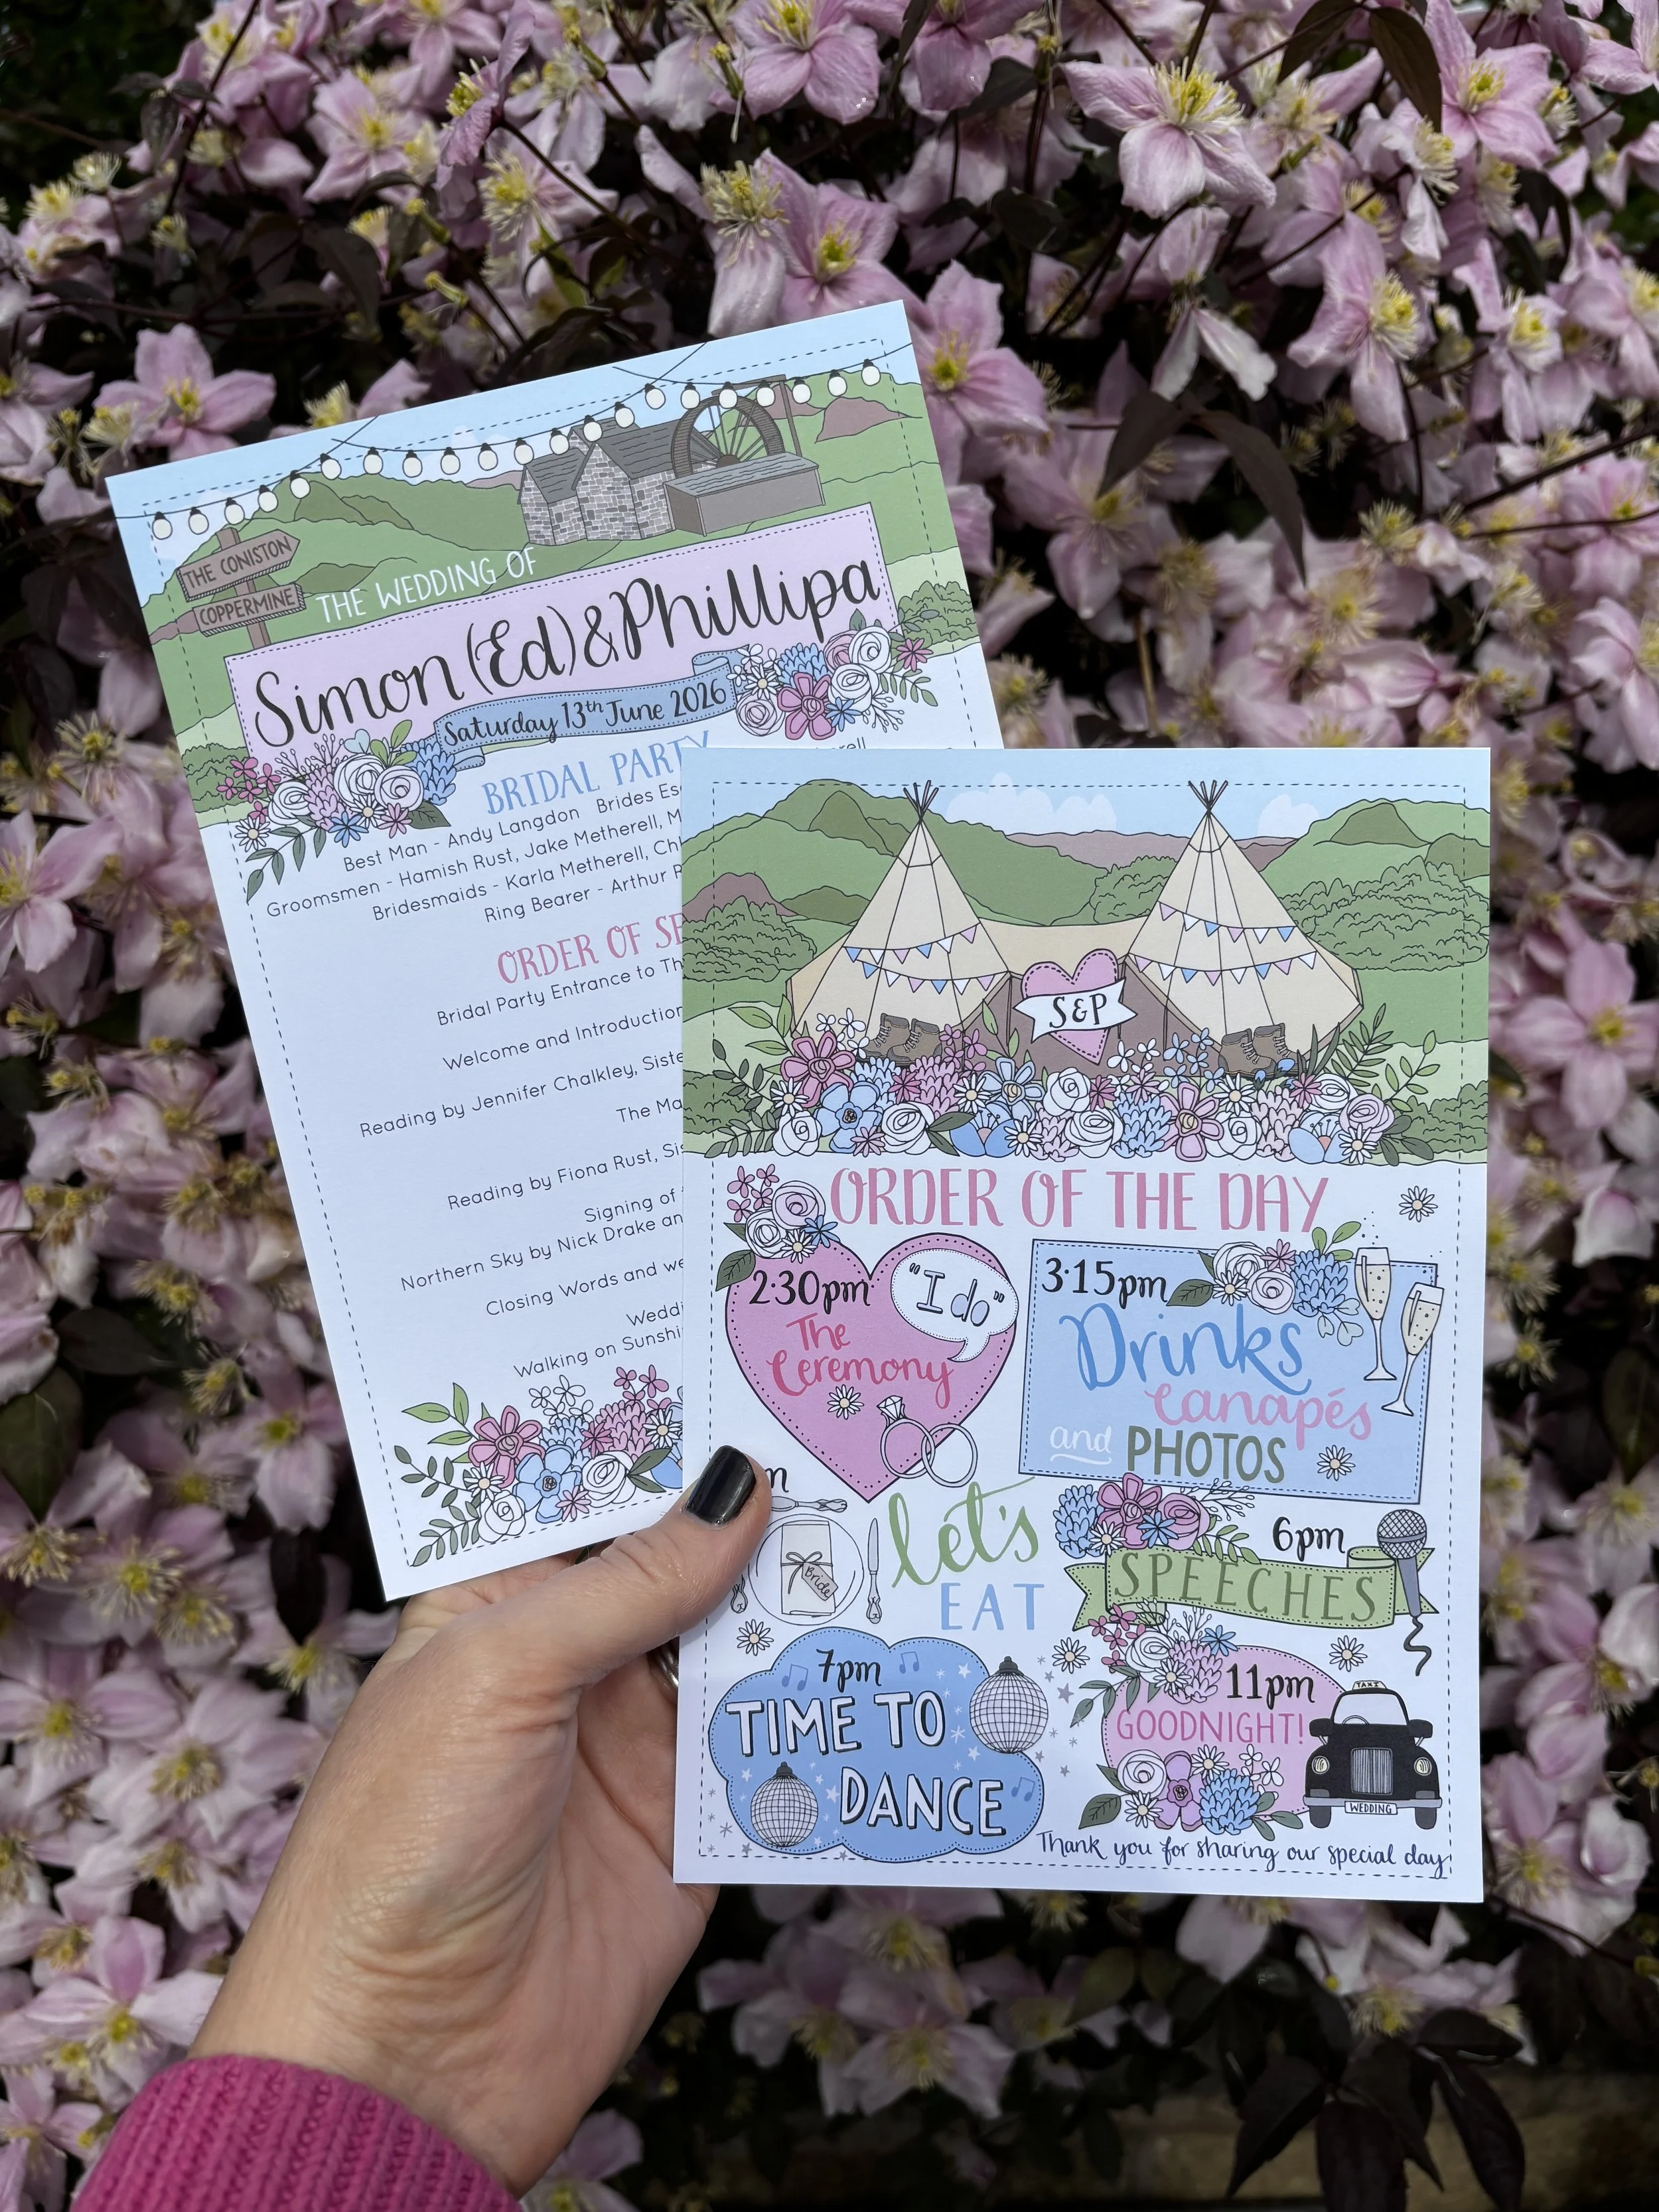 THE CONISTON
COPPERMINE
THE WEDDING OF
Simon (Ed) & Phillipa
Saturday 13th June 2026
BRIDAL PARTY
Best Man - Andy Langdon Brides
Groomsmen - Hamish Rust, Jake Metherell,
Bridesmaids - Karla Metherell,
Ring Bearer - Arthur
ORDER OF
Bridal Party Entrance to
Welcome and Introduction
Reading by Jennifer Chalkley,
The
Reading by Fiona Rust,
Signing of
Northern Sky by Nick Drake
Closing Words and
Walking on
S&P
ORDER OF THE DAY
2·30pm
"I do"
The
Ceremony
3·15pm
Drinks
Canapés
and PHOTOS
let's
EAT
Bride
6pm
SPEECHES
7pm
TIME TO
DANCE
11pm
GOODNIGHT!
TAXI
WEDDING
Thank you for sharing our special day